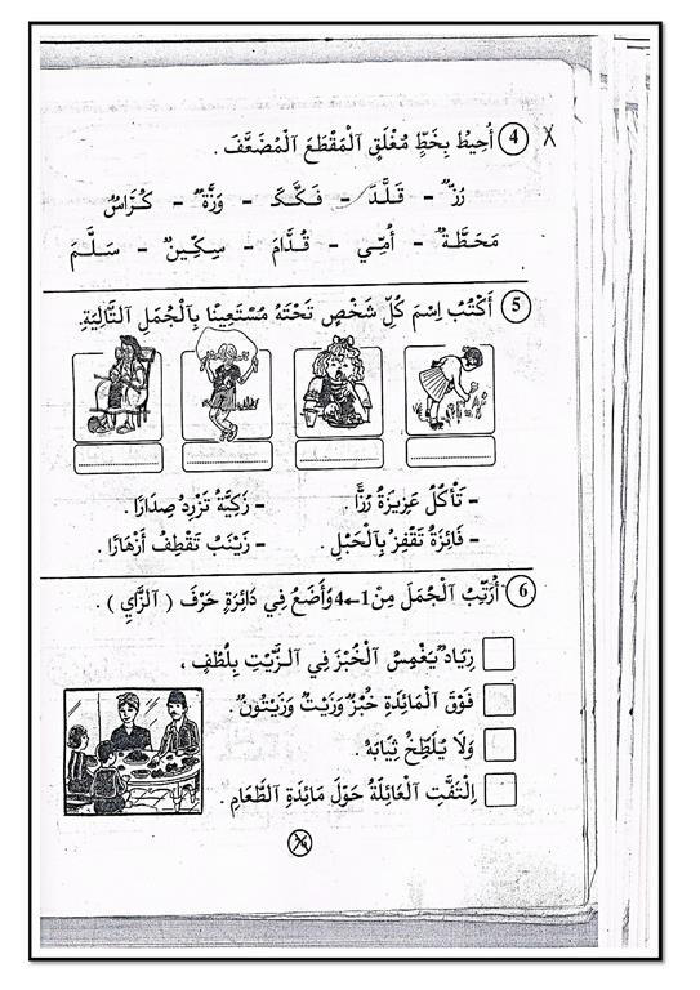 4 أُحِيطُ بِخَطٍّ مُغْلَقٍ ٱلْمَقْطَعَ ٱلْمُضَعَّفَ .
رُزٌّ - قَـلَّـدَ - فَـكَّـكَ - وَزَّةٌ - كُـرَّاسٌ
مَحَـطَّـةٌ - أُمِّـي - قُـدَّامَ - سِـكِّـينٌ - سَـلَّـمَ
5 أَكْتُبُ اِسْمَ كُلِّ شَخْصٍ تَحْتَهُ مُسْتَعِينًا بِٱلْجُمَلِ ٱلتَّالِيَةِ.
- تَأْكُلُ عَزِيزَةُ رُزًّا . - زَكِيَّةُ تَزْرِدُ صِدَارًا .
- فَائِزَةُ تَقْفِزُ بِٱلْحَبْلِ . - زَيْنَبُ تَقْطِفُ أَزْهَارًا .
6 أُرَتِّبُ ٱلْجُمَلَ مِنْ 1←4 وَأَضَعُ فِي دَائِرَةٍ حَرْفَ ( ٱلزَّايِ ) .
زِيَادٌ يَغْمِسُ ٱلْخُبْزَ فِي ٱلـزَّيْتِ بِلُطْفٍ ،
فَوْقَ ٱلْمَائِدَةِ خُبْزٌ وَزَيْتٌ وَزَيْتُونٌ .
وَلَا يُلَطِّخُ ثِيَابَهُ .
اِلْتَفَّتِ ٱلْعَائِلَةُ حَوْلَ مَائِدَةِ ٱلطَّعَامِ .